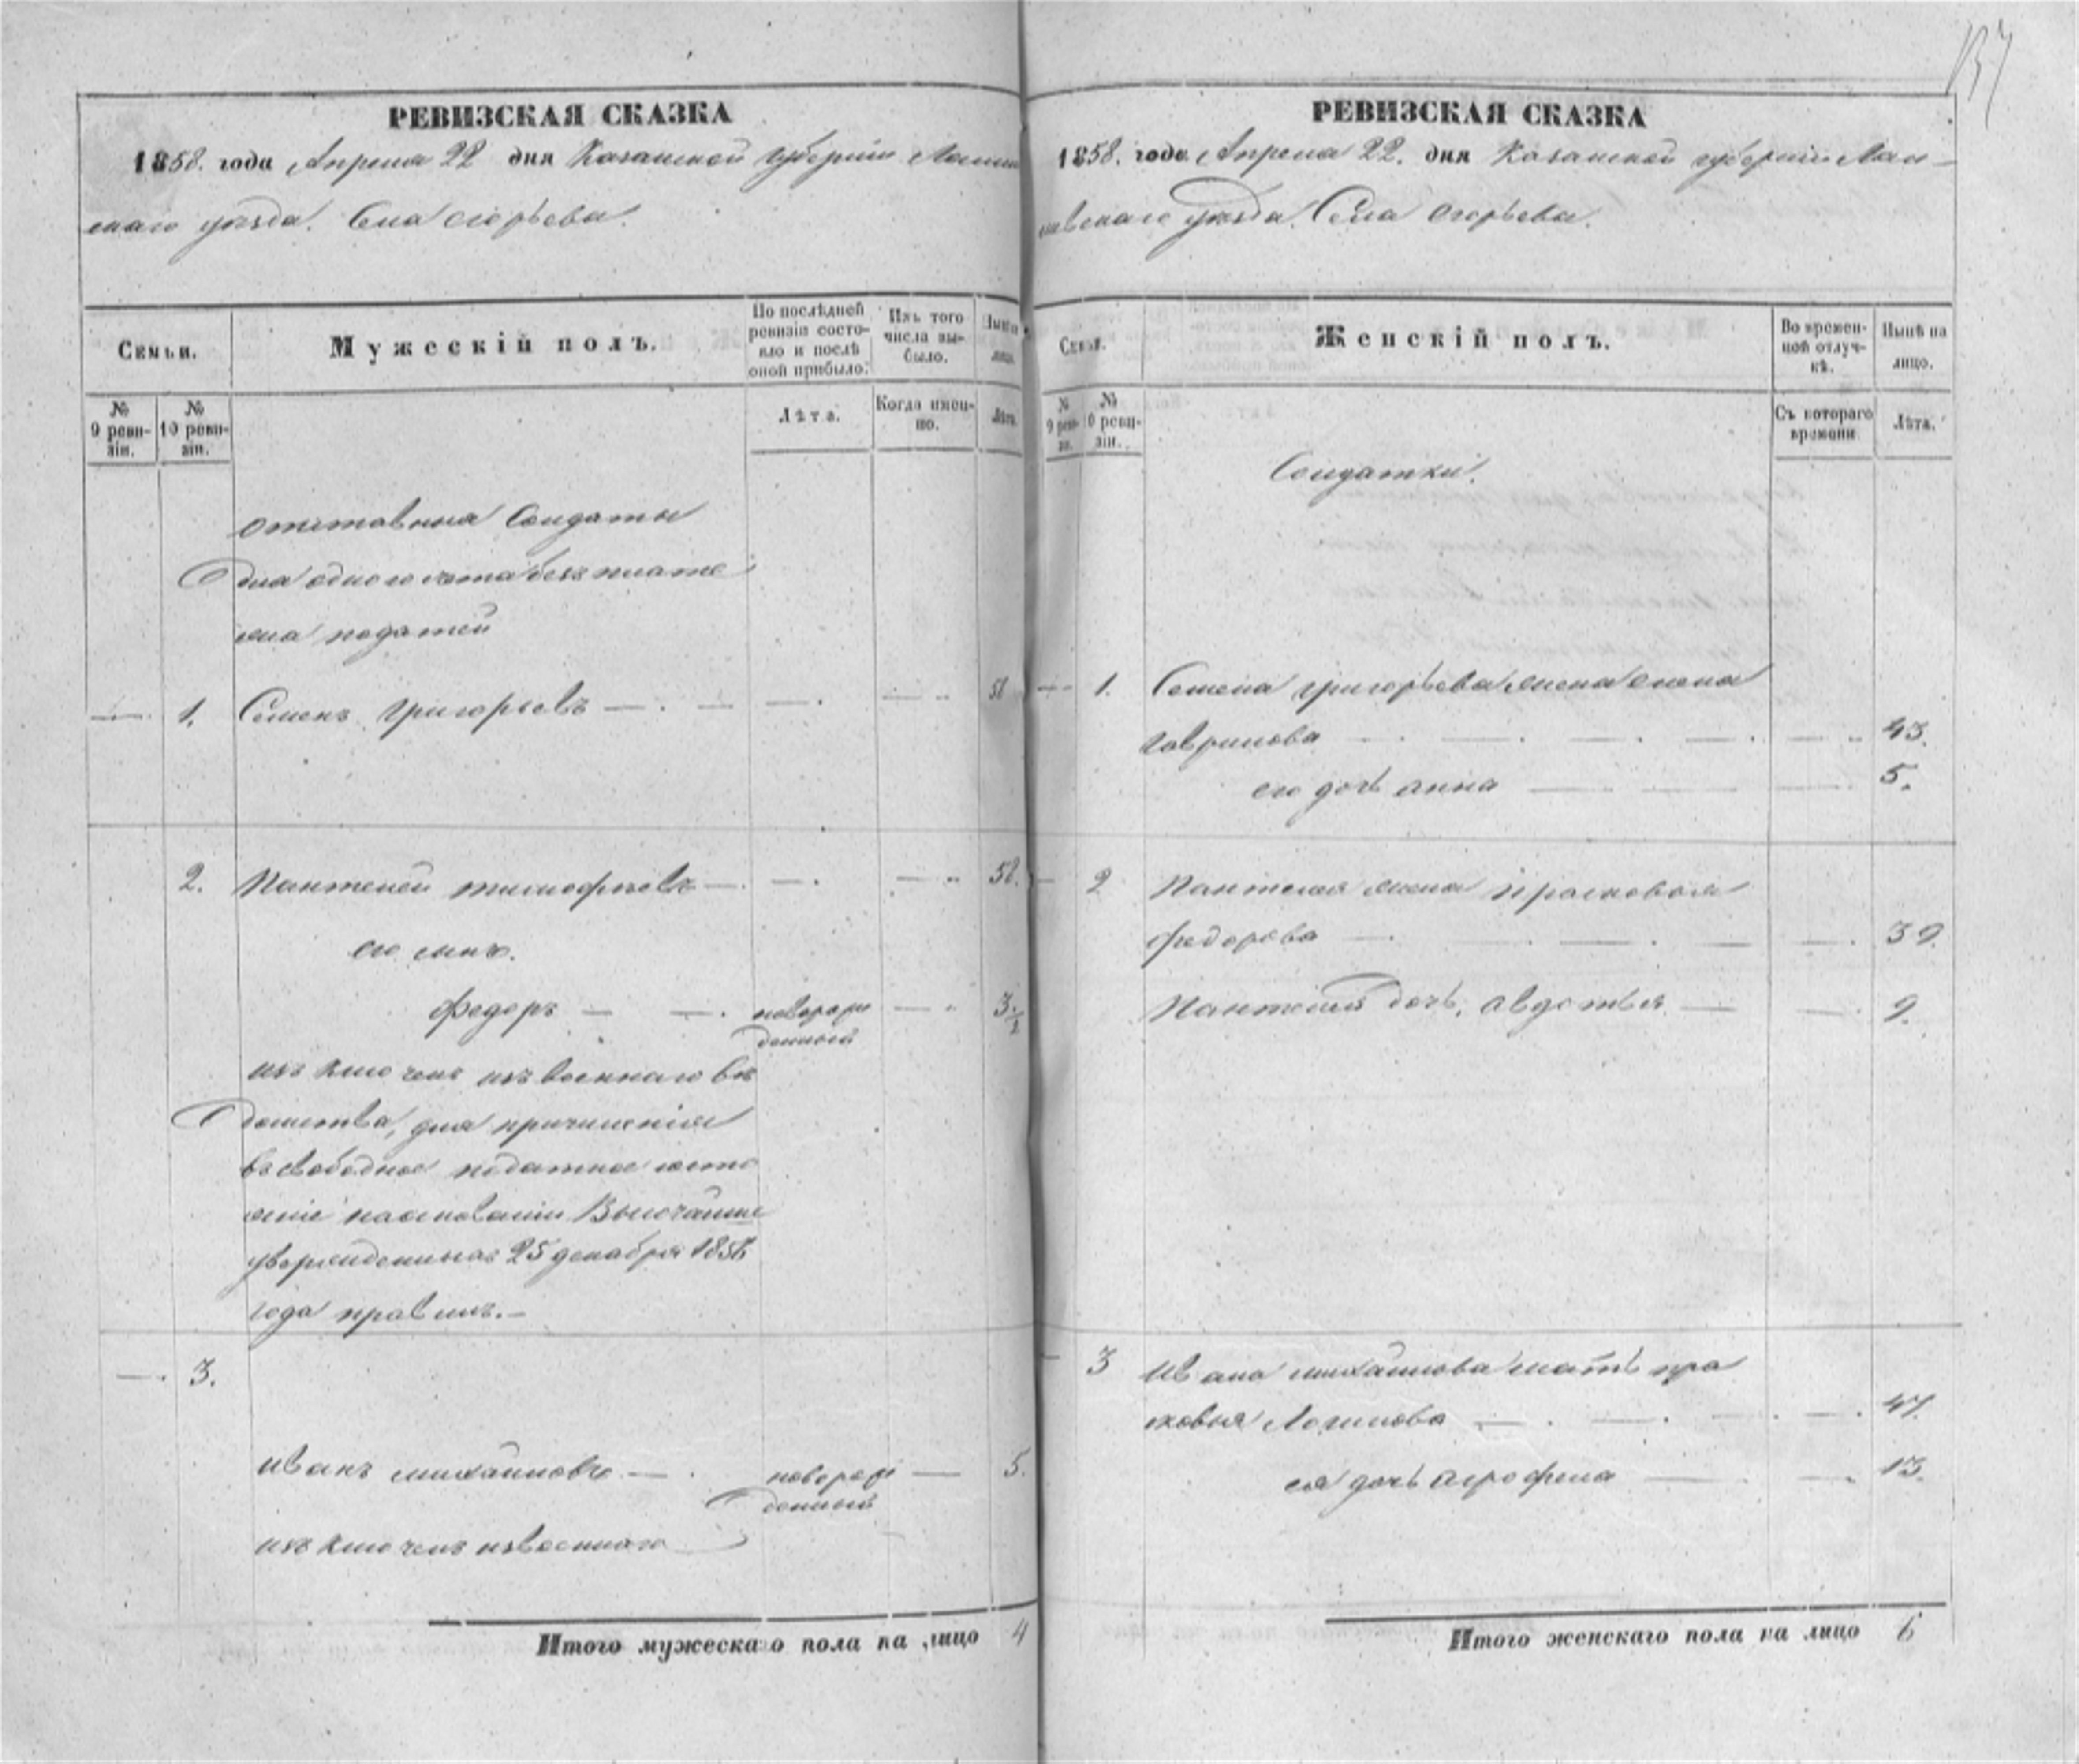 137
РЕВИЗСКАЯ СКАЗКА
1858. года Апреля 22 дня Казанской губерніи Лаише
скаго уѣзда. Села Егорьева.
Семьи.
Мужескій полъ.
По послѣдней ревизіи состояло и послѣ оной прибыло.
Изъ того числа выбыло.
Нынѣ на лицо.
№ 9 ревизіи.
№ 10 ревизіи.
Лѣта.
Когда именно.
Лѣта.
отставныя Солдаты
для одного счета безъ плате
жа податей
1. Семенъ Григорьевъ 51
2. Пантелей тимофѣевъ 52.
его сынъ.
Федоръ новорож 3 1/2
денный
изключенъ изъ военнаго вѣ
домства, для причисленія
въ свободное податное состо
яніе наоснованіи Высочайше
утвержденныхъ 25 декабря 1856
года правилъ.
3.
иванъ михайловъ новорож 5.
денный
изключенъ извоеннаго
Итого мужескаго пола на лицо 4
РЕВИЗСКАЯ СКАЗКА
1858. года Апреля 22. дня Казанской губерніи Лаи-
шевскаго уѣзда. Села Егорьева.
Семьи.
Женскій полъ.
Во временной отлучкѣ.
Нынѣ на лицо.
№ 9 ревизіи.
№ 10 ревизіи.
Съ котораго времени.
Лѣта.
Солдатки.
1. Семена григорьева жена елена
гаврилова 43.
его дочь анна 5.
2 Пантелея жена прасковья
федорова 39.
Пантелея дочь, авдотья 9.
3 ивана михайлова мать пра
сковья Логинова 47.
ея дочь агрофена 13.
Итого женскаго пола на лицо 6